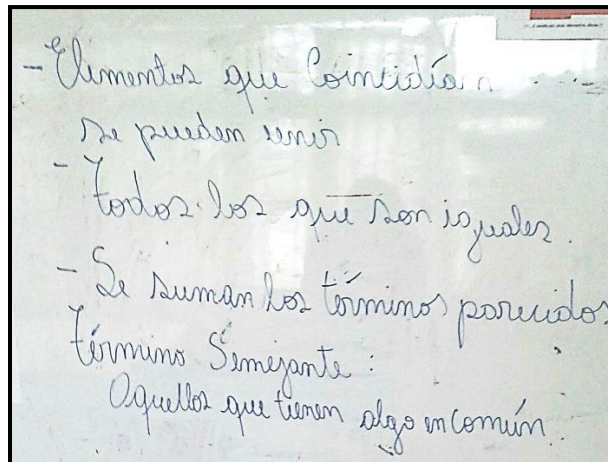 - Elementos que Coincidían
se pueden unir
- Todos los que son iguales.
- Se suman los términos parecidos
Término Semejante:
Aquellos que tienen algo en común.